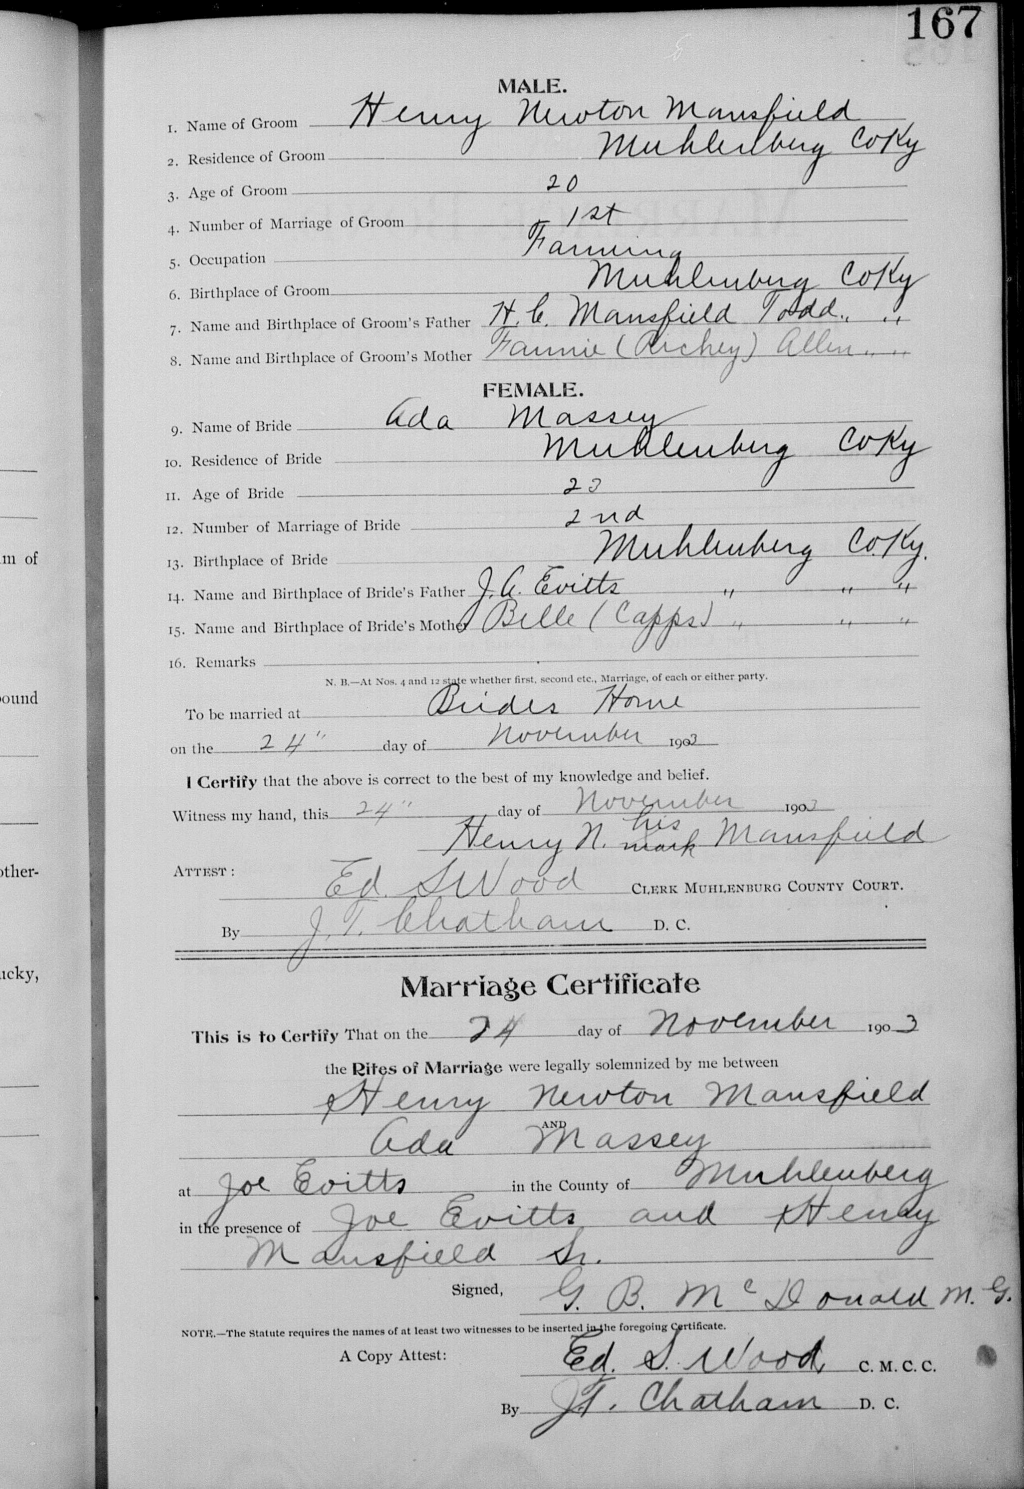 167
MALE.
1. Name of Groom Henry Newton Mansfield
2. Residence of Groom Muhlenberg Co Ky
3. Age of Groom 20
4. Number of Marriage of Groom 1st
5. Occupation Farming
6. Birthplace of Groom Muhlenberg Co Ky
7. Name and Birthplace of Groom's Father H. C. Mansfield Todd " "
8. Name and Birthplace of Groom's Mother Fannie (Richey) Allen " "
FEMALE.
9. Name of Bride Ada Massey
10. Residence of Bride Muhlenberg Co Ky
11. Age of Bride 23
12. Number of Marriage of Bride 2nd
13. Birthplace of Bride Muhlenberg Co Ky.
14. Name and Birthplace of Bride's Father J. A. Evitts " " "
15. Name and Birthplace of Bride's Mother Belle (Capps) " " "
16. Remarks
N. B.—At Nos. 4 and 12 state whether first, second etc., Marriage, of each or either party.
To be married at Brides Home
on the 24" day of November 1903
I Certify that the above is correct to the best of my knowledge and belief.
Witness my hand, this 24" day of November 1903
Henry N. his mark Mansfield
ATTEST:
Ed S Wood CLERK MUHLENBURG COUNTY COURT.
By J. T. Chatham D. C.
Marriage Certificate
This is to Certify That on the 24 day of November 1903
the Rites of Marriage were legally solemnized by me between
Henry Newton Mansfield
AND
Ada Massey
at Joe Evitts in the County of Muhlenberg
in the presence of Joe Evitts and Henry
Mansfield Sr.
Signed, G. B. McDonald M. G.
NOTE.—The Statute requires the names of at least two witnesses to be inserted in the foregoing Certificate.
A Copy Attest: Ed. S. Wood C. M. C. C.
By J.T. Chatham D. C.